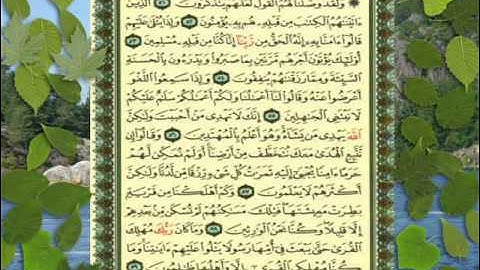 ۞ وَلَقَدْ وَصَّلْنَا لَهُمُ الْقَوْلَ لَعَلَّهُمْ يَتَذَكَّرُونَ ۝٥١ الَّذِينَ
ءَاتَيْنَٰهُمُ الْكِتَٰبَ مِن قَبْلِهِۦ هُم بِهِۦ يُؤْمِنُونَ ۝٥٢ وَإِذَا يُتْلَىٰ عَلَيْهِمْ
قَالُوٓا۟ ءَامَنَّا بِهِۦٓ إِنَّهُ الْحَقُّ مِن رَّبِّنَآ إِنَّا كُنَّا مِن قَبْلِهِۦ مُسْلِمِينَ ۝٥٣
أُو۟لَٰٓئِكَ يُؤْتَوْنَ أَجْرَهُم مَّرَّتَيْنِ بِمَا صَبَرُوا۟ وَيَدْرَءُونَ بِالْحَسَنَةِ
السَّيِّئَةَ وَمِمَّا رَزَقْنَٰهُمْ يُنفِقُونَ ۝٥٤ وَإِذَا سَمِعُوا۟ اللَّغْوَ
أَعْرَضُوا۟ عَنْهُ وَقَالُوا۟ لَنَآ أَعْمَٰلُنَا وَلَكُمْ أَعْمَٰلُكُمْ سَلَٰمٌ عَلَيْكُمْ
لَا نَبْتَغِى الْجَٰهِلِينَ ۝٥٥ إِنَّكَ لَا تَهْدِى مَنْ أَحْبَبْتَ وَلَٰكِنَّ
اللَّهَ يَهْدِى مَن يَشَآءُ وَهُوَ أَعْلَمُ بِالْمُهْتَدِينَ ۝٥٦ وَقَالُوٓا۟ إِن
نَّتَّبِعِ الْهُدَىٰ مَعَكَ نُتَخَطَّفْ مِنْ أَرْضِنَآ أَوَلَمْ نُمَكِّن لَّهُمْ
حَرَمًا ءَامِنًا يُجْبَىٰٓ إِلَيْهِ ثَمَرَٰتُ كُلِّ شَىْءٍ رِّزْقًا مِّن لَّدُنَّا وَلَٰكِنَّ
أَكْثَرَهُمْ لَا يَعْلَمُونَ ۝٥٧ وَكَمْ أَهْلَكْنَا مِن قَرْيَةٍۭ
بَطِرَتْ مَعِيشَتَهَا فَتِلْكَ مَسَٰكِنُهُمْ لَمْ تُسْكَن مِّنۢ بَعْدِهِمْ
إِلَّا قَلِيلًا وَكُنَّا نَحْنُ الْوَٰرِثِينَ ۝٥٨ وَمَا كَانَ رَبُّكَ مُهْلِكَ
الْقُرَىٰ حَتَّىٰ يَبْعَثَ فِىٓ أُمِّهَا رَسُولًا يَتْلُوا۟ عَلَيْهِمْ ءَايَٰتِنَا وَمَا
كُنَّا مُهْلِكِى الْقُرَىٰٓ إِلَّا وَأَهْلُهَا ظَٰلِمُونَ ۝٥٩